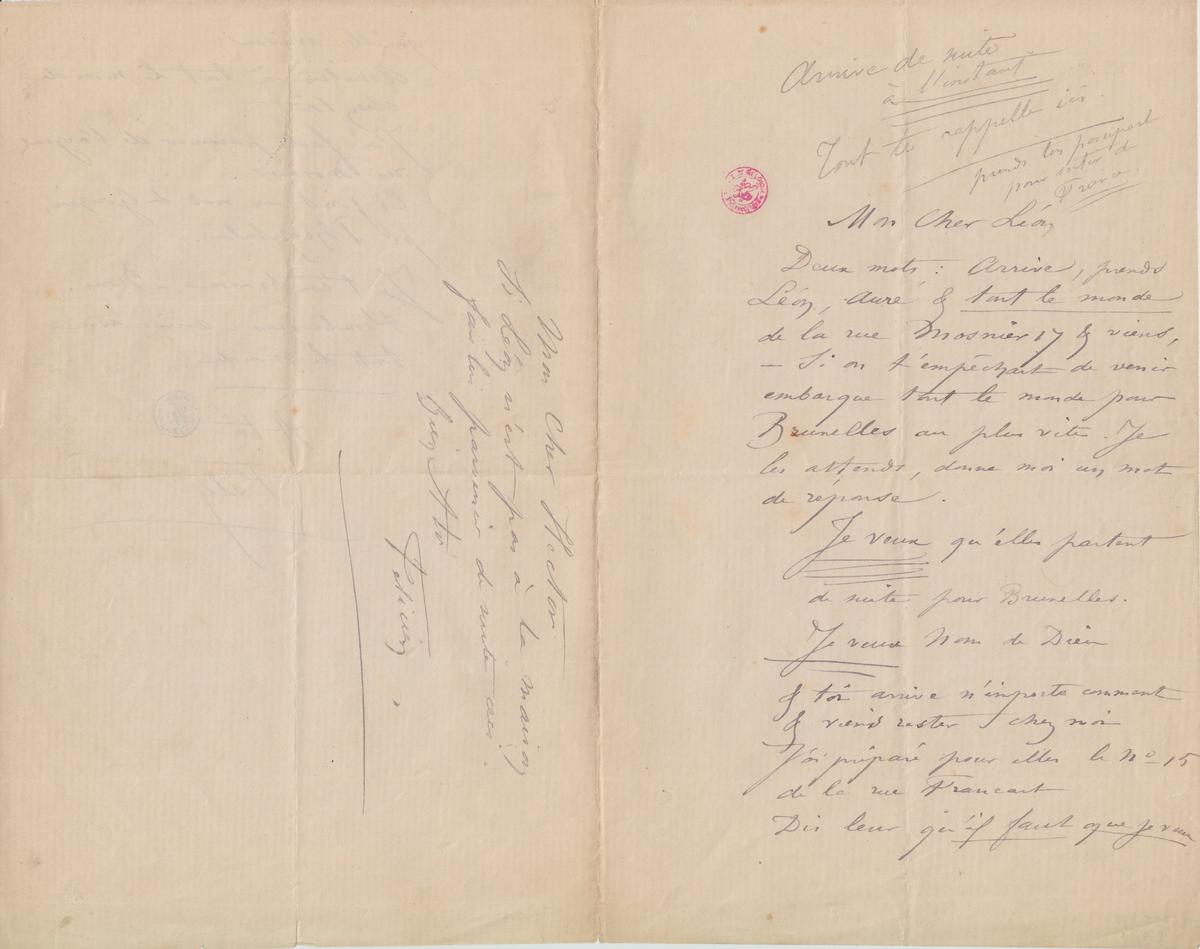 Arrive de suite
à l'instant
Tout te rappelle ici.
prends ton passeport
pour entrer de
France.
Mon Cher Léon,
Deux mots : Arrive, prends
Léon, Auré & tout le monde
de la rue Mosnier 17 & viens,
— Si on t'empêchait de venir
embarque tout le monde pour
Bruxelles au plus vite. Je
les attends, donne moi un mot
de réponse.
Je veux qu'elles partent
de suite pour Bruxelles.
Je veux Nom de Dieu
& toi arrive n'importe comment
& viens rester chez moi
J'ai préparé pour elles le No 15
de la rue Francart
Dis leur qu'il faut que je veux
Mon Cher Hector.
Si Léon n'est pas à la maison
fais lui parvenir de suite ceci.
Bien à toi